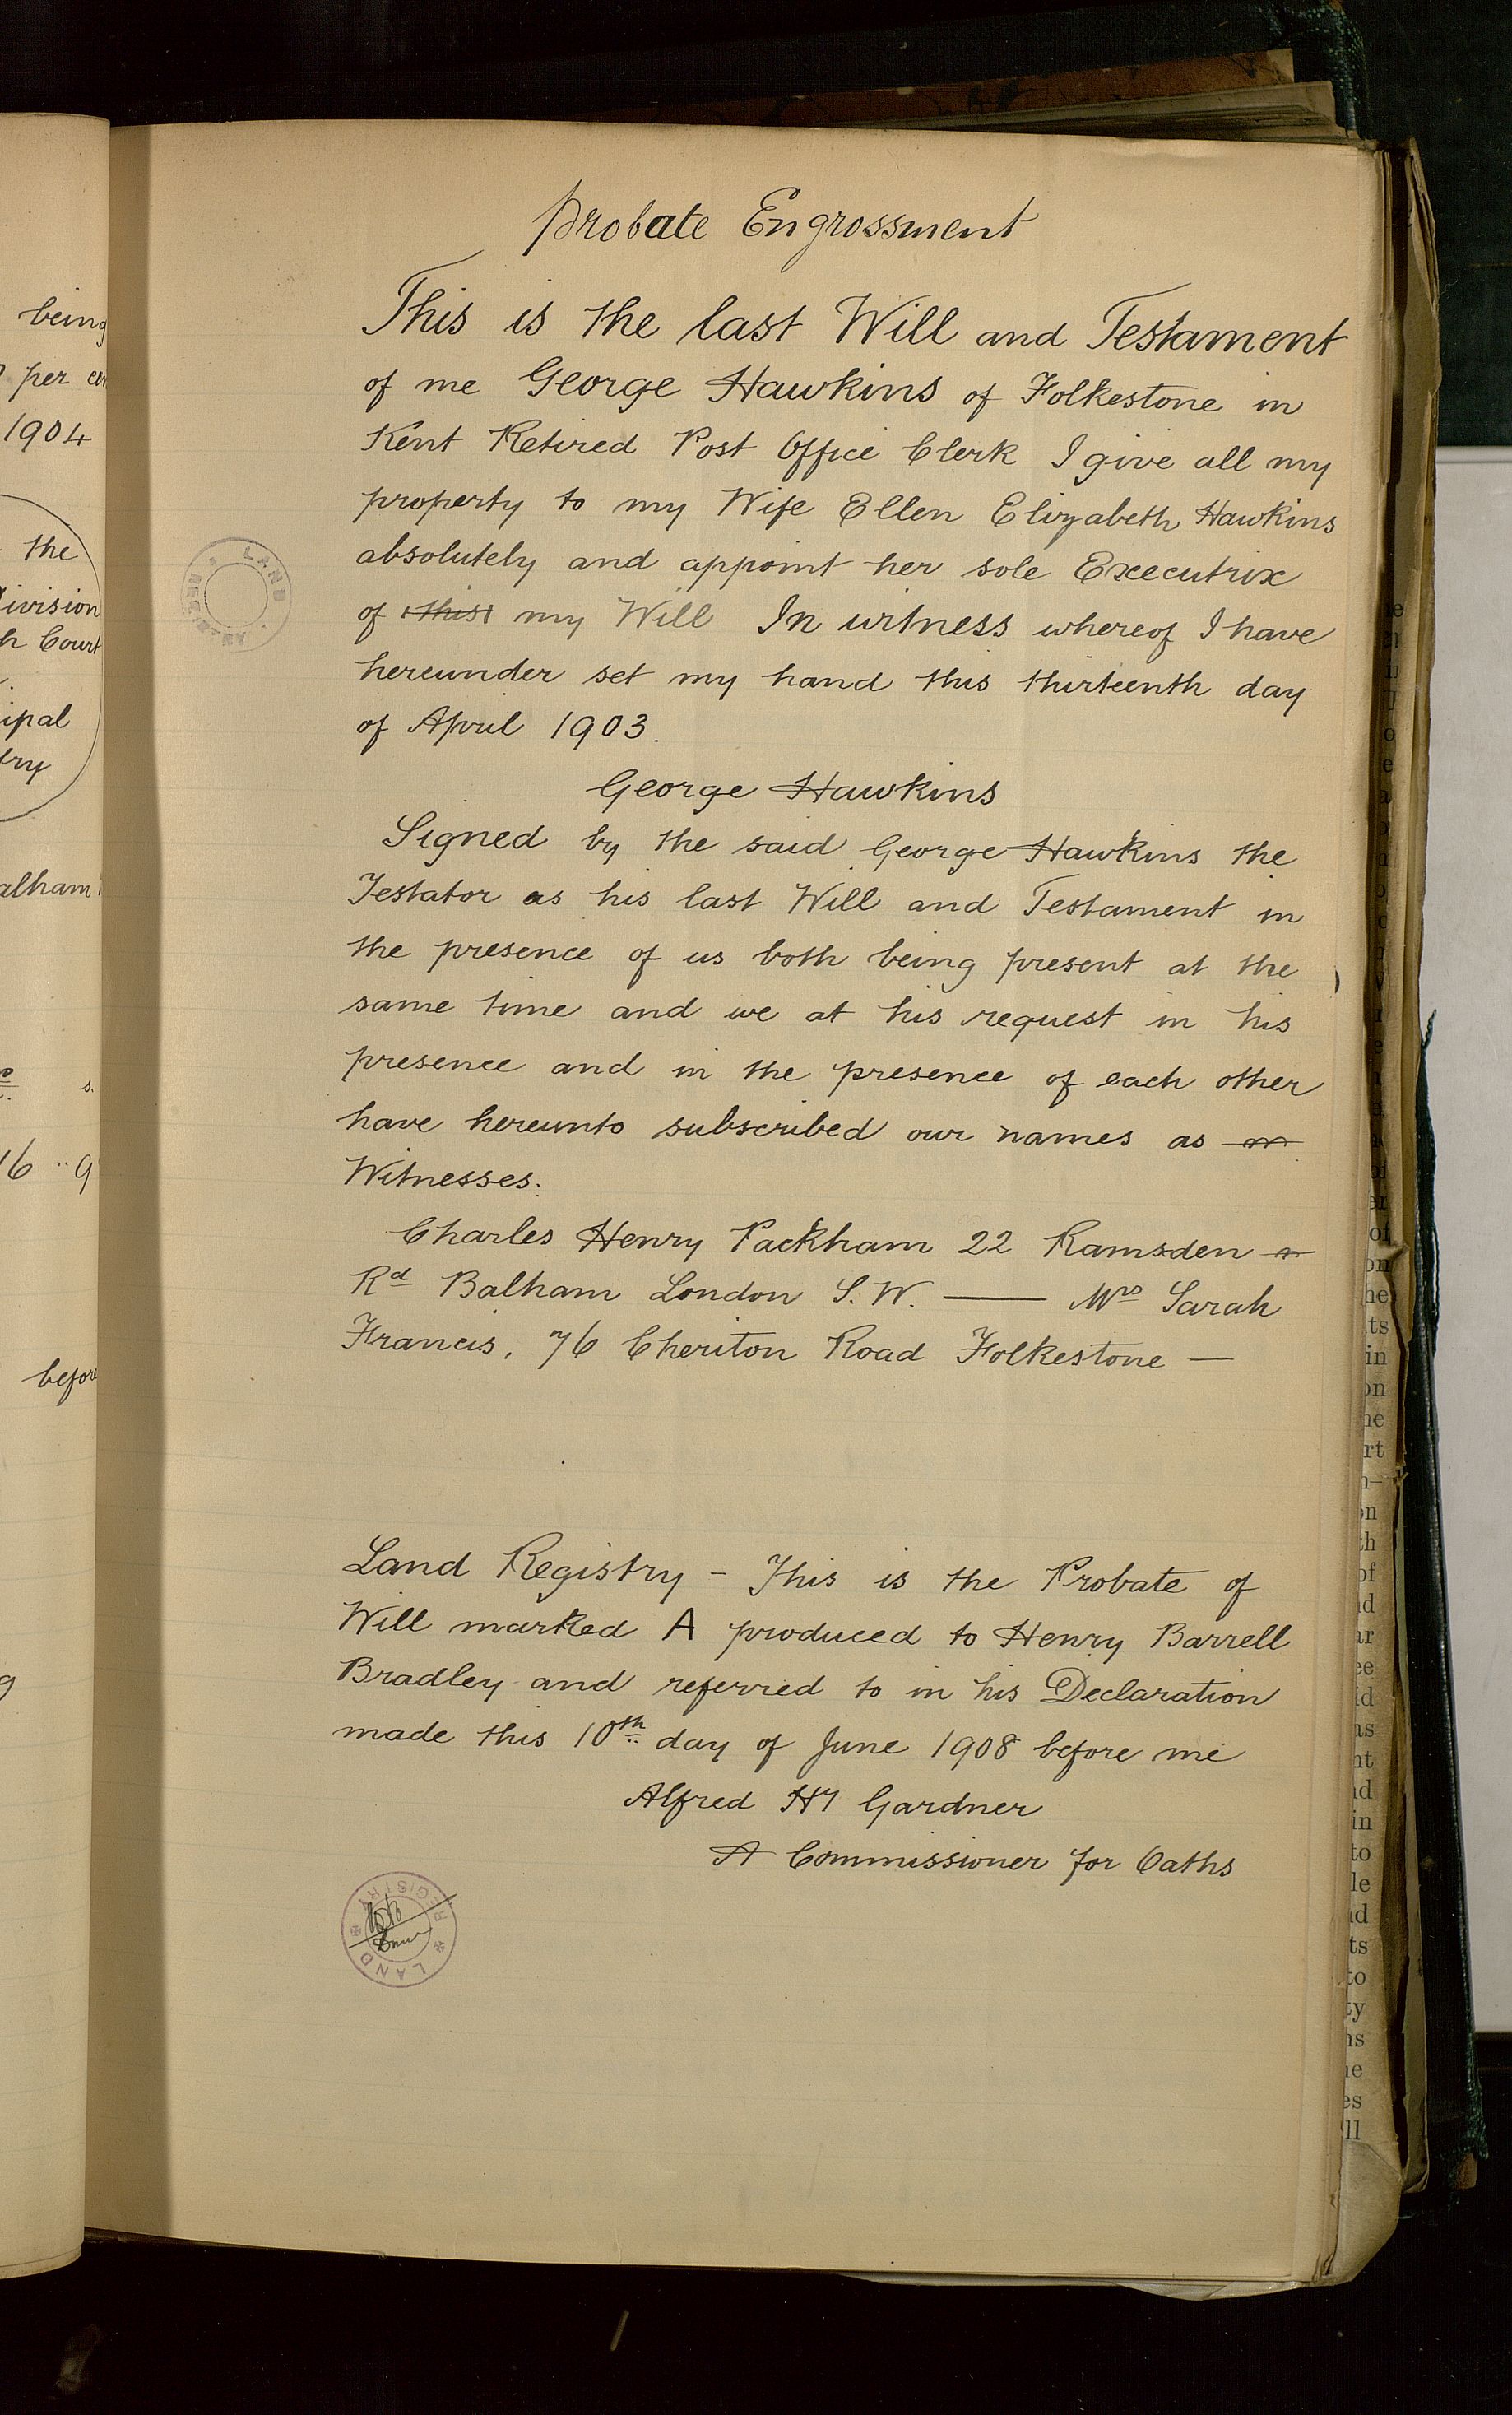 Probate Engrossment
This is the last Will and Testament
of me George Hawkins of Folkestone in
Kent Retired Post Office Clerk I give all my
property to my Wife Ellen Elizabeth Hawkins
absolutely and appoint her sole Executrix
of this my Will In witness whereof I have
hereunder set my hand this thirteenth day
of April 1903.
George Hawkins
Signed by the said George Hawkins the
Testator as his last Will and Testament in
the presence of us both being present at the
same time and we at his request in his
presence and in the presence of each other
have hereunto subscribed our names as
Witnesses.
Charles Henry Packham 22 Ramsden
Rd Balham London S.W. — Mrs Sarah
Francis, 76 Cheriton Road Folkestone —
Land Registry - This is the Probate of
Will marked A produced to Henry Barrell
Bradley and referred to in his Declaration
made this 10th day of June 1908 before me
Alfred Hy Gardner
A Commissioner for Oaths
LAND REGISTRY
LAND REGISTRY
being
per
1904
the
before